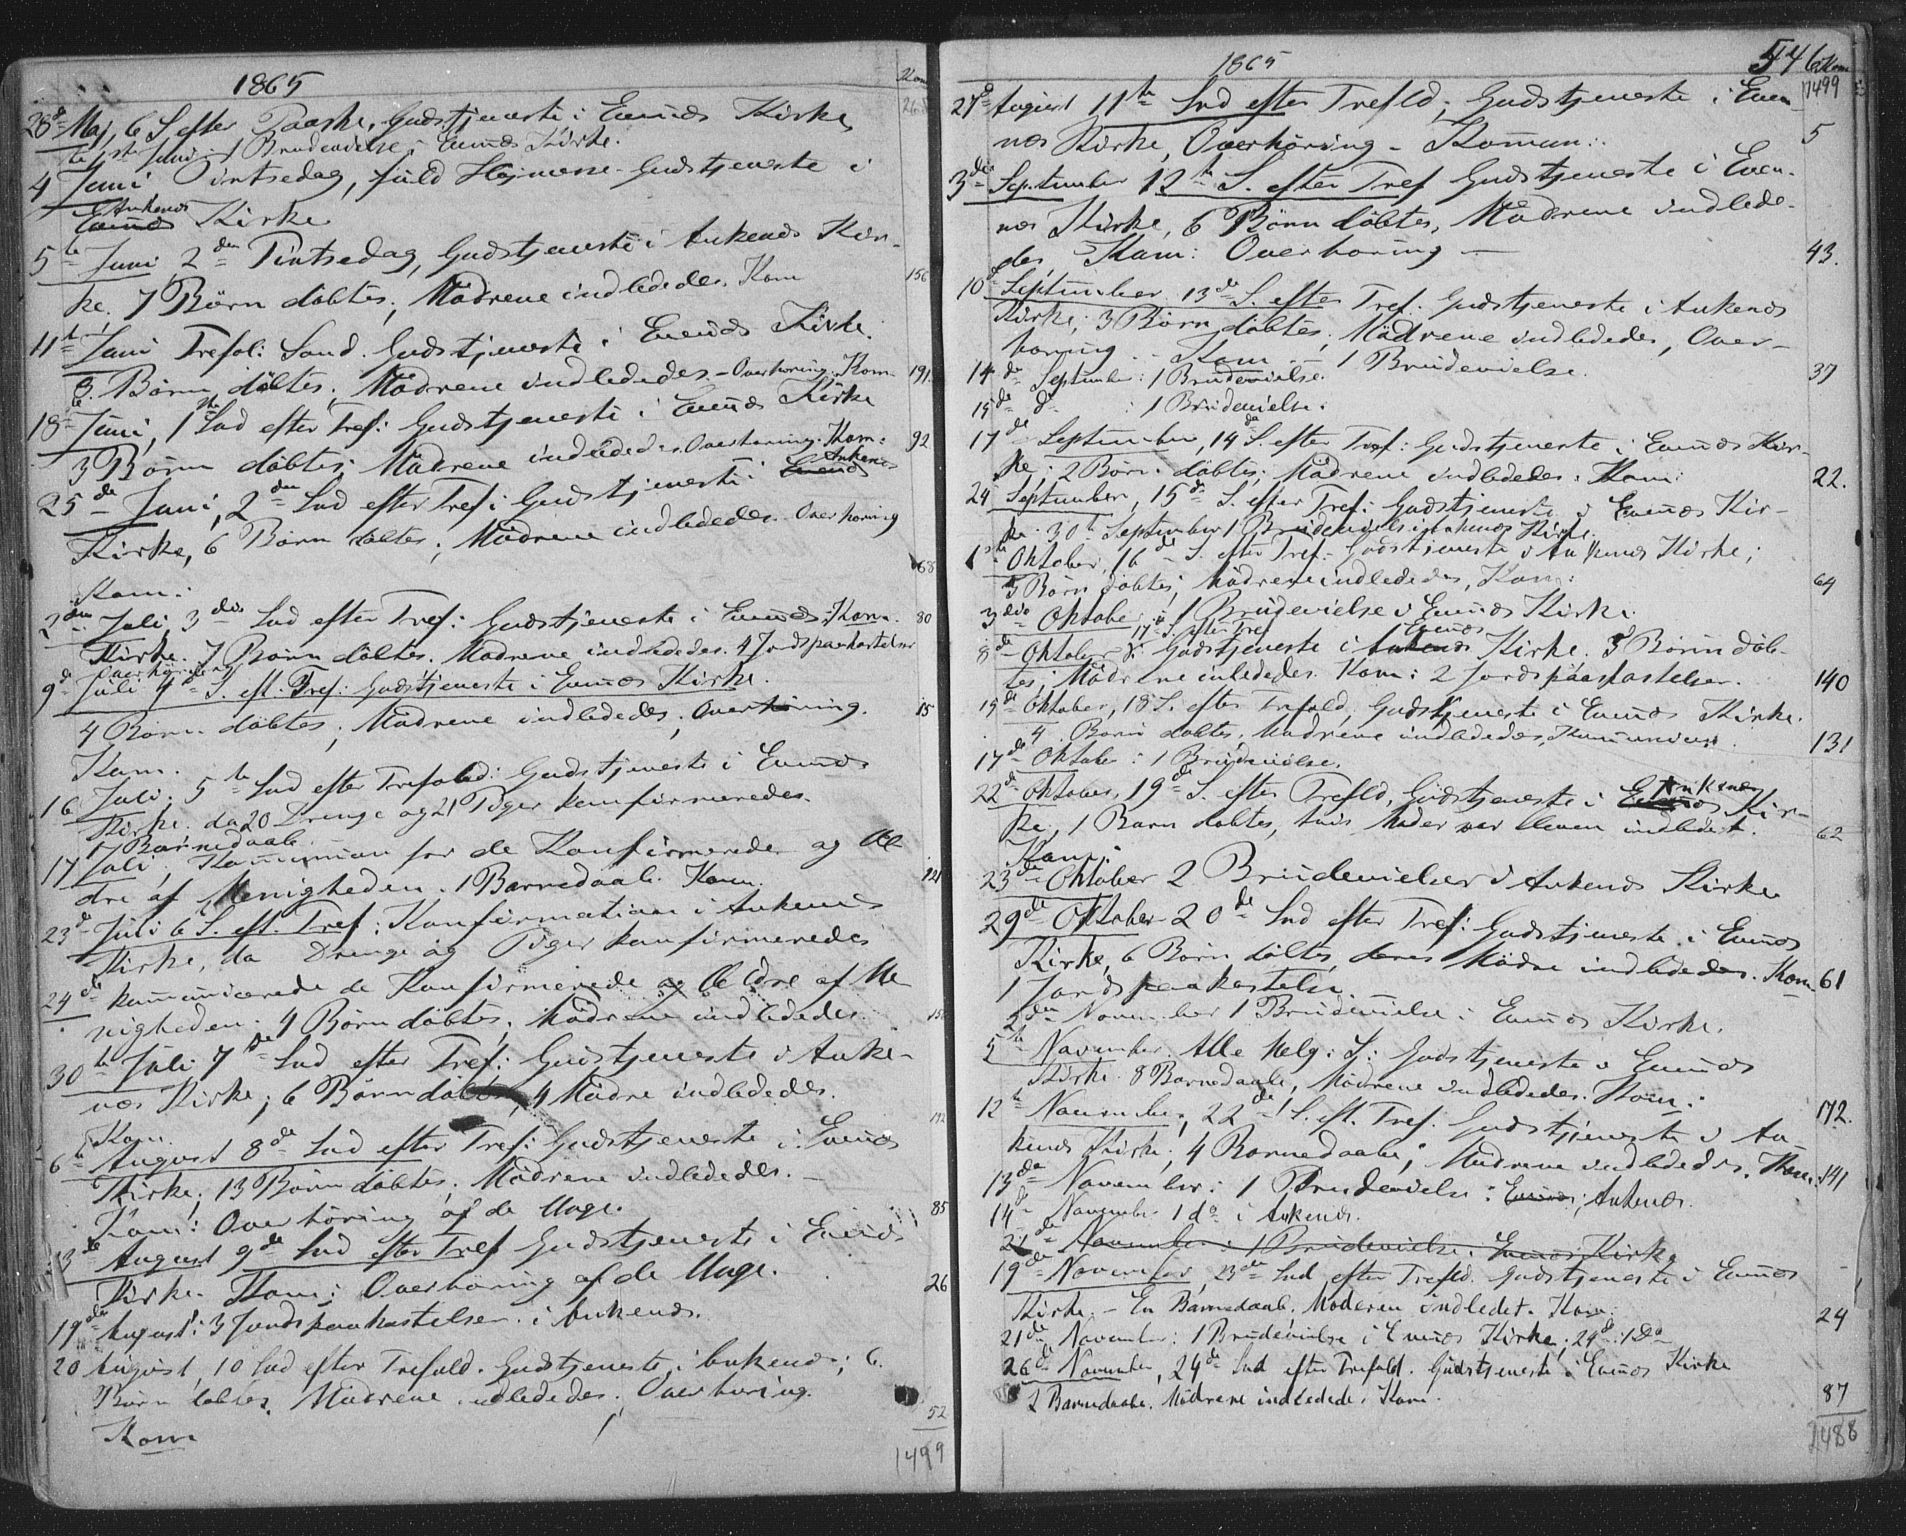 1865
Kom
28de Maj, 6 S. efter Paaske, Gudstjeneste i Evenæs Kirke
1ste Juni 1 Brudevielse i Evenæs Kirke.
4 Juni Pintsedag, fuld Højmesse Gudstjeneste i
Ankenæs
Evenæs Kirke.
5te Juni 2den Pintsedag, Gudstjeneste i Ankenæs Kir-
ke. 7 Børn døbtes, Mødrene indlededes. Kom 156
11te Juni Trefol: Sønd. Gudstjeneste i Evenæs Kirke.
8. Børn døbtes. Mødrene indlededes. - Overhøring. Kom. 191.
18de Juni, 1ste Snd efter Tref: Gudstjeneste i Evenæs Kirke
3 Børn døbtes; Mødrene indlededes. Overhøring. Kom: 92
Ankenæs
25de Juni, 2den Snd efter Tref: Gudstjeneste i Evenæs
Kirke, 6 Børn døbtes; Mødrene indlededes. Overhøring
Kom: 68
2den Juli 3die Snd efter Tref: Gudstjeneste i Evenæs Kom. 80
Kirke. 7 Børn døbtes. Mødrene indlededes. 4 Jordspaakastelser
Overhøring
9de Juli 4de S. eft. Tref: Gudstjeneste i Evenæs Kirke.
4 Børn døbtes; Mødrene indlededes; Overhøring. 15
Kom.
16 Juli, 5te Snd efter Trefold: Gudstjeneste i Evenæs
Kirke, da 20 Drenge og 21 Piger konfirmeredes.
17 Barnedaab.
17 Juli, Kommunion for de Konfirmerede og Æl
dre af Menigheden. 1 Barnedaab. Kom. 121
23de Juli 6 S. eft. Tref: Konfirmation i Ankenæs
Kirke, da Drenge og Piger konfirmeredes
24de kommunicerede de Konfirmerede og Ældre af Me
nigheden. 4 Børn døbtes; Mødrene indlededes.
30te Juli 7de Snd efter Tref: Gudstjeneste i Anke-
næs Kirke; 6 Børn døbtes, 4 Mødre indlededes.
Kom.
6te August 8de Snd efter Tref: Gudstjeneste i Evenæs
Kirke; 13 Børn døbtes. Mødrene indlededes. -
Kom: Overhøring af de Unge. 85
13de August 9de Snd efter Tref Gudstjeneste i Evenæs
Kirke. Kom; Overhøring af de Unge. 26
19de August: 3 Jordspaakastelser i Ankenæs.
20 August, 10 Snd efter Trefold. Gudstjeneste i Ankenæs; 6
Børn døbtes. Mødrene indlededes; Overhøring.
Kom 52
1499
1865
546
Kom
1499
27de August 11te Snd efter Trefld; Gudstjeneste i Even
næs Kirke, Overhøring - Kommun: 5
3die September 12te S. efter Tref Gudstjeneste i Even-
næs Kirke, 6 Børn døbtes, Mødrene indlede-
des Kom: Overhøring - 43.
10de September 13de S. efter Tref. Gudstjeneste i Ankenæs
Kirke; 3 Børn døbtes; Mødrene indlededes, Over-
høring. - Kom - 1 Brudevielse.
14de September: 1 Brudevielse. 37
15de do : 1 Brudevielse.
17de September, 14de S. efter Tref: Gudstjeneste i Evenæs Kir-
ke; 2 Børn døbtes; Mødrene indlededes. Kom: 22.
24 September, 15de S. efter Tref: Gudstjeneste i Evenæs Kir-
ke. 30te September 1 Brudevielse i Ankenæs Kirke.
1ste Oktober, 16de S. efter Tref. Gudstjeneste i Ankenæs Kirke;
5 Børn døbtes; Mødrene indlededes, Kom: 64
3die Oktober: 1 Brudevielse i Evenæs Kirke.
17de S. efter Tref Evenæs
8de Oktober : Gudstjeneste i Ankenæs Kirke. 3 Børn døb-
tes; Mødrene indlededes. Kom: 2 Jordspaakastelser. 140
15de Oktober, 18 S. efter Trefold, Gudstjeneste i Evenæs Kirke.
4 Børn døbtes, Mødrene indlededes, Kommunion. 131
17de Oktober: 1 Brudevielse.
Ankenæs
22de Oktober, 19de S. efter Trefld, Gudstjeneste i Evenæs Kir-
ke, 1 Barn døbtes, hvis Moder var bleven indledet. 62
Kom:
23de Oktober 2 Brudevielser i Ankenæs Kirke
29de Oktober 20de Snd efter Tref: Gudstjeneste i Evenæs
Kirke, 6 Børn døbtes, deres Mødre indlededes. Kom. 61
1 Jordspaakastelse.
2den November 1 Brudevielse i Evenæs Kirke.
5te November. Alle Helg: S: Gudstjeneste i Evenæs
Kirke. 8 Barnedaabe, Mødrene indlededes. Kom: 172.
12te November, 22de S. eft. Tref. Gudstjeneste i An-
kenæs Kirke, 4 Barnedaabe; Mødrene indlededes. Kom. 141
13de November: 1 Brudevielse: Evenæs, Ankenæs.
14de November 1 do i Ankenæs.
21de November: 1 Brudevielse. Evenæs Kirke
19de November, 23de Snd efter Trefld. Gudstjeneste i Evenæs
Kirke. - En Barnedaab. Moderen indledet. Kom: 24
21de November: 1 Brudevielse i Evenæs Kirke; 24de: 1 do
26de November, 24de Snd efter Trefold. Gudstjeneste i Evenæs Kirke
2 Barnedaabe. Mødrene indledede. Kom. 87
2488